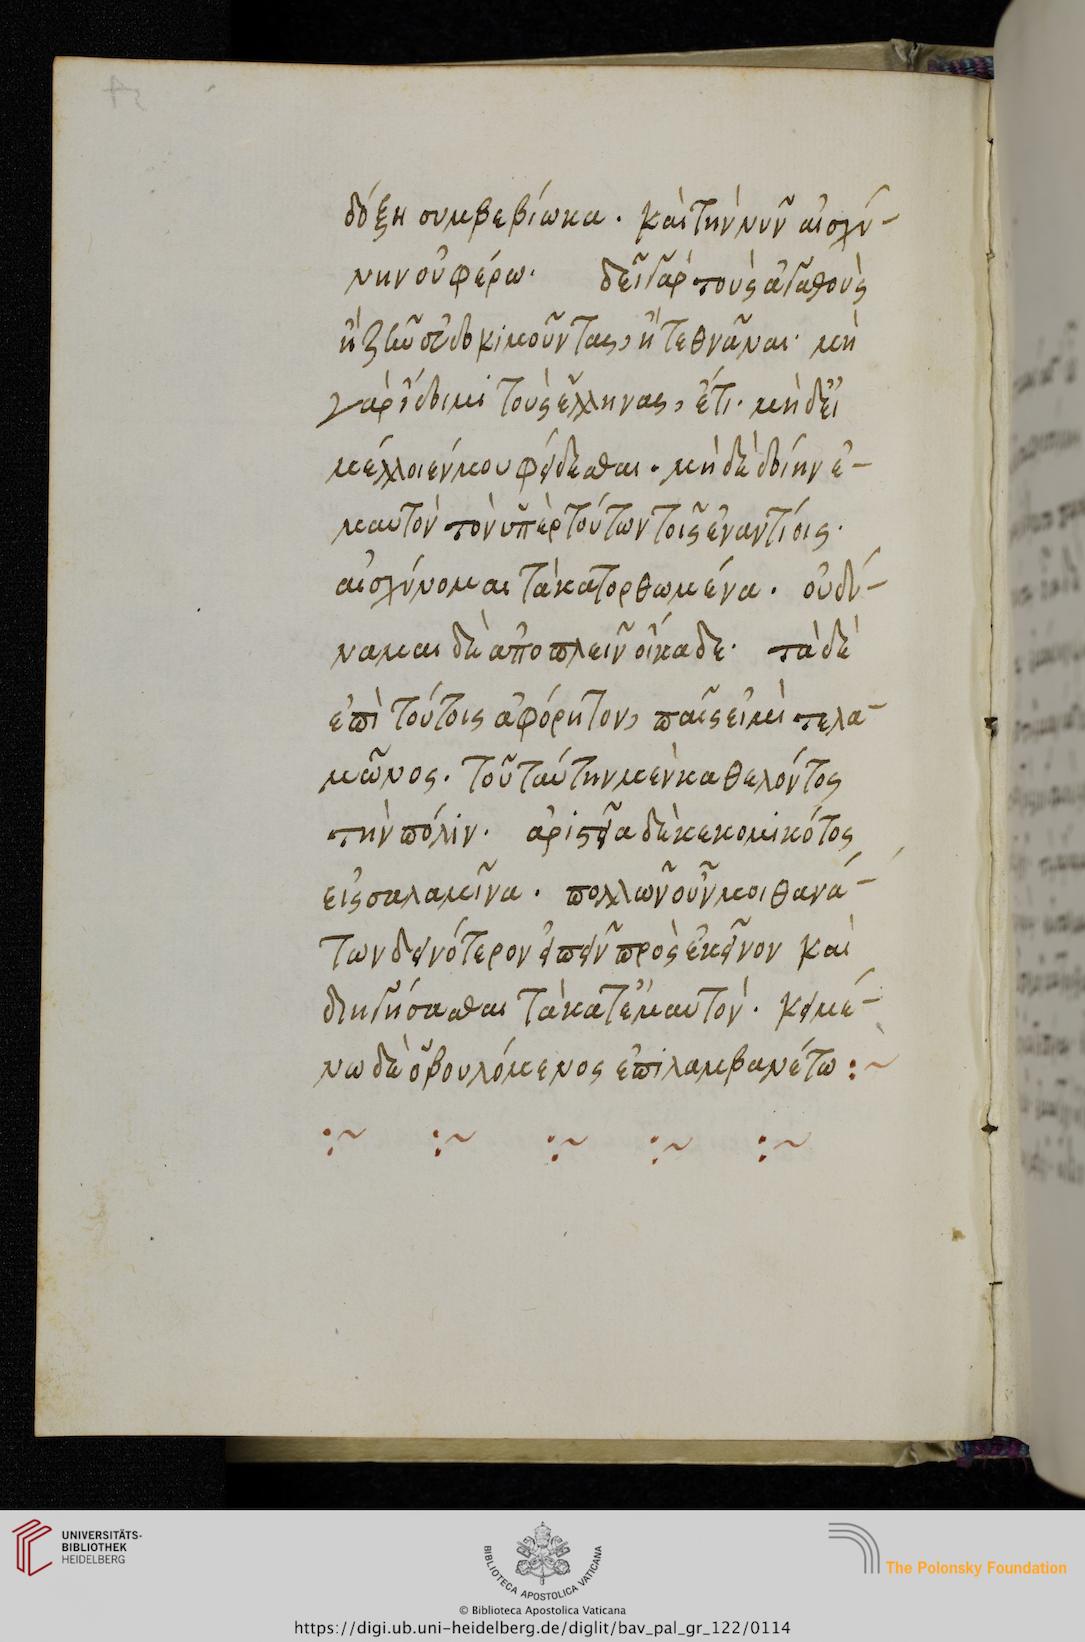 δόξη συμβεβίωκα. καὶ τὴν νῦν αἰσχύ-
νην οὐ φέρω. δεῖ γὰρ τοὺς ἀγαθοὺς
ἢ ζῶντας εὐδοκιμοῦντας, ἢ τεθνᾶναι. μὴ
γὰρ ἴδοιμι τοὺς ἕλληνας, ἔτι. μὴ δεῖ
μέλλοι ἐν μου φείδεσθαι. μὴ δὲ δοίην ἐ-
μαυτὸν τὸν ὑπὲρ τούτων τοῖς ἐναντίοις.
αἰσχύνομαι τὰ κατορθωμένα. οὐ δύ-
ναμαι δὲ ἀποπλεῖν οἴκαδε. τὰ δὲ
ἐπὶ τούτοις ἀφόρητον, παῖς εἰμὶ τελα-
μῶνος. τοῦ ταύτην μὲν καθελόντος
τὴν πόλιν. ἀριστεῖα δὲ κεκομικότος
εἰς σαλαμῖνα. πολλῶν οὖν μοι θανά-
των δεινότερον εἰπεῖν πρὸς ἐκεῖνον καὶ
διηγήσασθαι τὰ κατ' ἐμαυτόν. κειμέ-
νω δὲ ὁ βουλόμενος ἐπιλαμβανέτω :~
:~ :~ :~ :~ :~
UNIVERSITÄTS-
BIBLIOTHEK
HEIDELBERG
BIBLIOTECA APOSTOLICA VATICANA
The Polonsky Foundation
© Biblioteca Apostolica Vaticana
https://digi.ub.uni-heidelberg.de/diglit/bav_pal_gr_122/0114